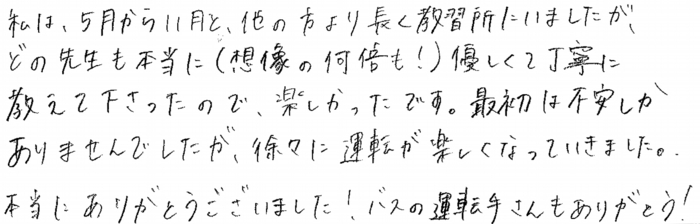 私は、5月から11月と、他の方より長く教習所にいましたが、
どの先生も本当に(想像の何倍も!)優しくて丁寧に
教えて下さったので、楽しかったです。最初は不安しか
ありませんでしたが、徐々に運転が楽しくなっていきました。
本当にありがとうございました!バスの運転手さんもありがとう!